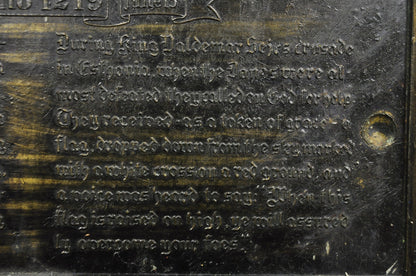 1219
During King Valdemar Sejrs crusade
in Esthonia, when the Danes were al-
most defeated they called on God for help
They received - as a token of grace - a
flag, dropped down from the sky marked
with a white cross on a red ground, and
a voice was heard to say: "When this
flag is raised on high, ye will assured
ly overcome your foes."